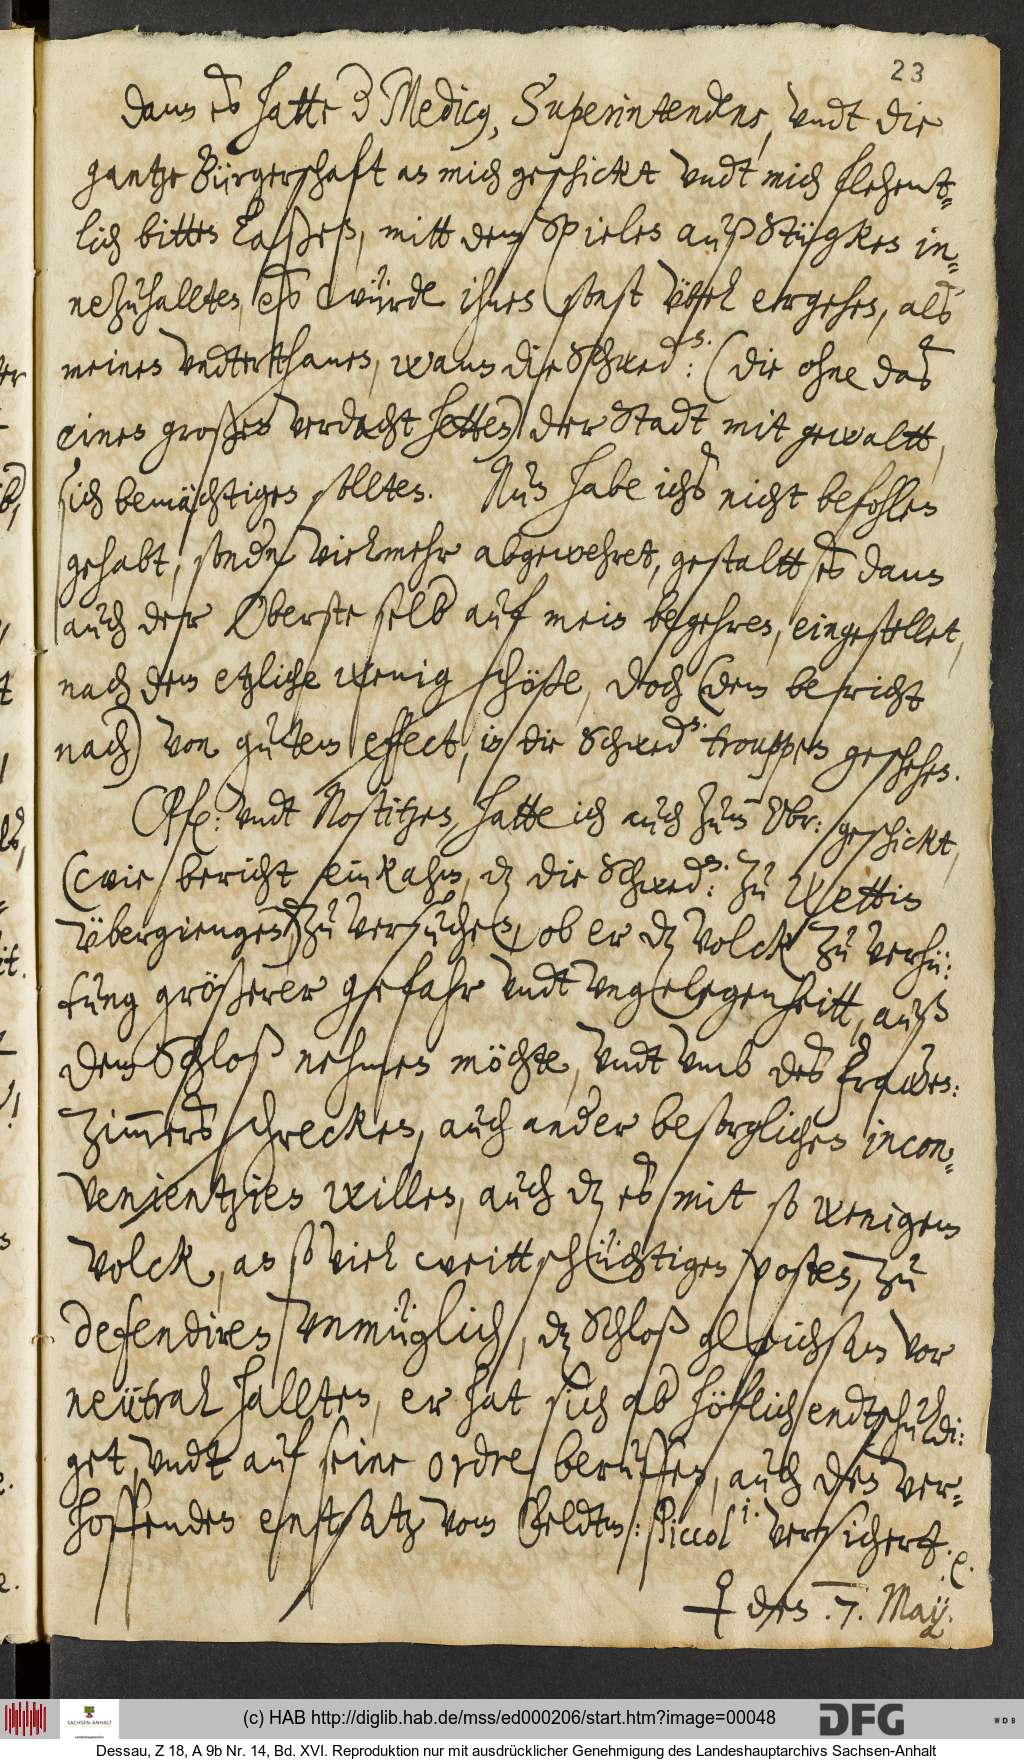 23
dann es hatte 3 Medicy, Superintendens, vndt die
gantze Bürgerschafft an mich geschickt vndt mich flehent-
lich bitten laßen, mitt dem Spielen auß Stügken in-
nezuhalten, es würde ihnen sonst übel ergehen, als
meinen vndterthanen, wann die Schwed:s. (die ohne das
einen großen verdacht hetten) der Stadt mit gewaltt,
sich bemächtigen sollten. Nun habe ichs nicht befohlen
gehabt, sondn vielmehr abgewehret, gestaltt es dann
auch der Oberste selb auf mein begehren, eingestellet,
nach dem etzliche wenig schöße, doch (dem bericht
nach) von gutem effect, in die Schweds. trouppen geschehen.
Pfe: vndt Nostitzen, hatte ich auch zum Obr: geschickt,
(wie bericht einkahm, dz die Schwed:s. zu Wettin
übergiengen) zu versuchen, ob er dz volck zu verhü-
tung größerer gefahr vndt vngelegenheitt, auß
dem Schloß nehmen möchte, vndt vmb des Frawen-
zimmers schrecken, auch ander besorglichen incon-
venientzien willen, auch dz es mit so wenigem
volck, an so viel weittschüchtigen posten, zu
defendiren vnmüglich, dz Schloß gleichsam vor
neütral hallten, er hat sich ab höflich endtschuldi-
get, vndt auf seine ordre beruffen, auch den ver-
hoffenden entsatz vom Feldtm: Piccol i. versichert. e.
♀ den .7. May.
(c) HAB http://diglib.hab.de/mss/ed000206/start.htm?image=00048
SACHSEN-ANHALT
DFG
WDB
Dessau, Z 18, A 9b Nr. 14, Bd. XVI. Reproduktion nur mit ausdrücklicher Genehmigung des Landeshauptarchivs Sachsen-Anhalt